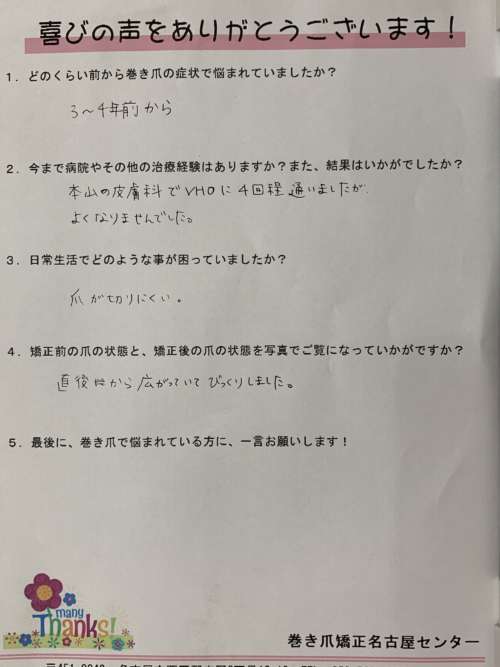 喜びの声をありがとうございます！
1．どのくらい前から巻き爪の症状で悩まれていましたか？
3〜4年前から
2．今まで病院やその他の治療経験はありますか？また、結果はいかがでしたか？
本山の皮膚科でVHOに4回程通いましたが
よくなりませんでした。
3．日常生活でどのような事が困っていましたか？
爪が切りにくい。
4．矯正前の爪の状態と、矯正後の爪の状態を写真でご覧になっていかがですか？
直後から広がっていてびっくりしました。
5．最後に、巻き爪で悩まれている方に、一言お願いします！
many
Thanks!
巻き爪矯正名古屋センター